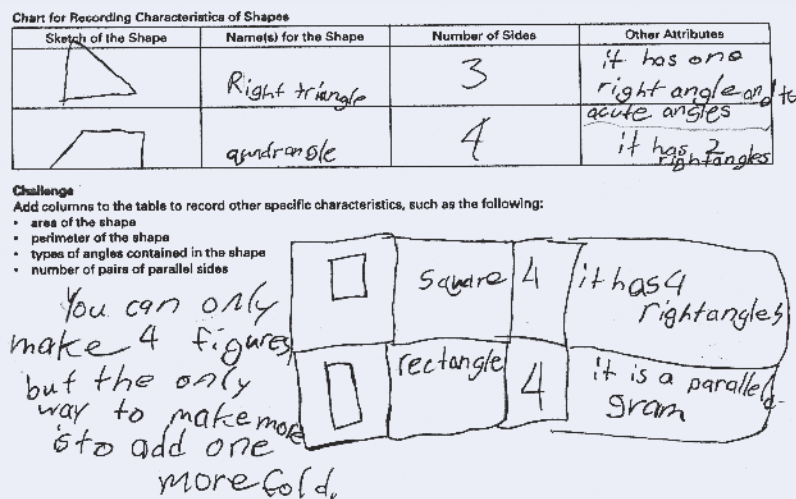 Chart for Recording Characteristics of Shapes
Sketch of the Shape Name(s) for the Shape Number of Sides Other Attributes
Right triangle 3 it has one
right angle and to
acute angles
quadrangle 4 it has 2
rightangles
Challenge
Add columns to the table to record other specific characteristics, such as the following:
• area of the shape
• perimeter of the shape
• types of angles contained in the shape
• number of pairs of parallel sides
square 4 it has 4
rightangles
rectangle 4 it is a parallelo-
gram
You can only
make 4 figures
but the only
way to make more
is to add one
more fold.